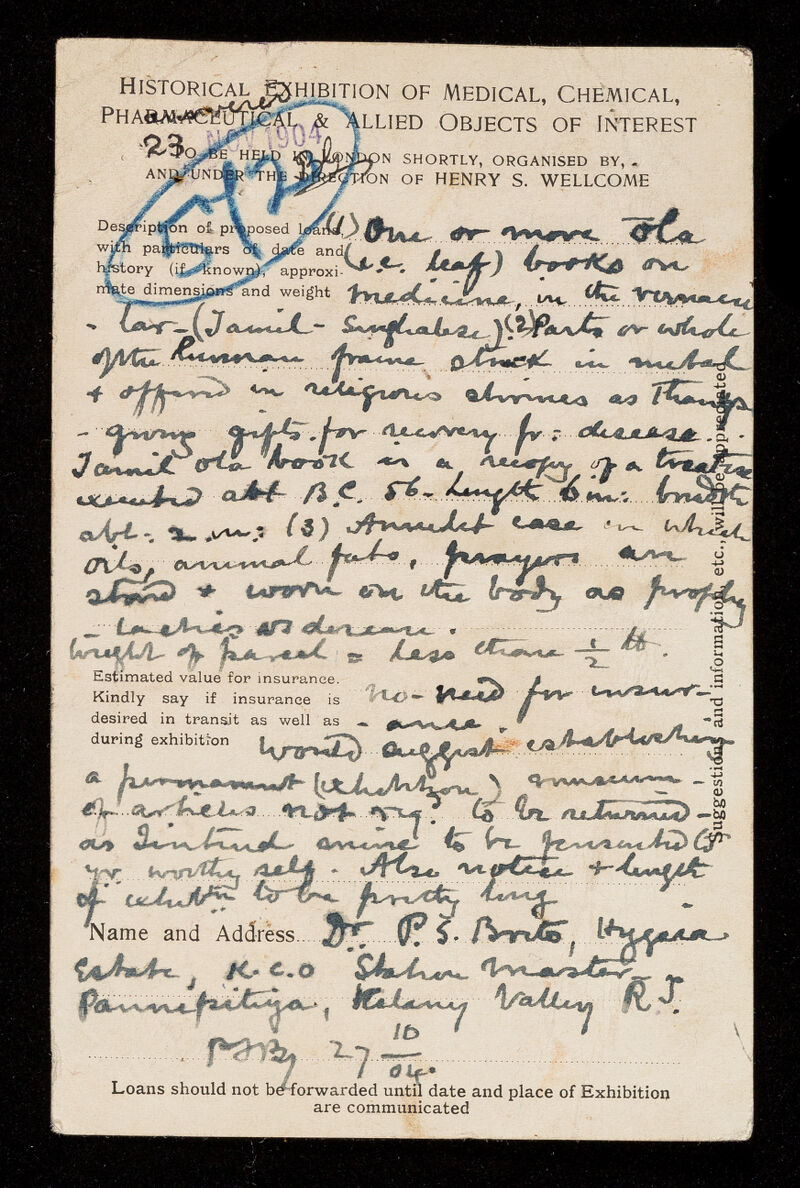 HISTORICAL EXHIBITION OF MEDICAL, CHEMICAL,
PHARMACEUTICAL & ALLIED OBJECTS OF INTEREST
answered
23 NOV 1904
TO BE HELD IN LONDON SHORTLY, ORGANISED BY,
AND UNDER THE DIRECTION OF HENRY S. WELLCOME
Description of proposed loans
with particulars of date and
history (if known), approxi-
mate dimensions and weight
(1) One or more ola
(i.e. leaf) books on
medicine, in the vernacu
- lar - (Tamil - Singhalese) (2) Parts or whole
of the human frame struck in metal
+ offered in religious shrines as thanks
- giving gifts for recovery fr: disease.
Tamil ola book is a recopy of a treatise
executed abt B.C. 56 - length 6 in: breadth
abt: 2 in: (3) Amulet case in which
oils, animal fats, prayers are
stored + worn on the body as prophy
- lactics disease.
weight of parcel = less than ½ lb.
Estimated value for insurance.
Kindly say if insurance is
desired in transit as well as
during exhibition
no need for insur-
- ance.
Would suggest establishing
a permanent (exhibition) museum -
of articles not reqd to be returned -
as I intend mine to be presented to
yr worthy self. Also notice + length
of exhibtn to be pretty long
Name and Address Dr. P. S. Brito, Hygeia
Estate, K.C.O Station Master
Pannipitiya, Kelany Valley R
27 10/04.
Loans should not be forwarded until date and place of Exhibition
are communicated
Suggestions and information, etc., will be appreciated